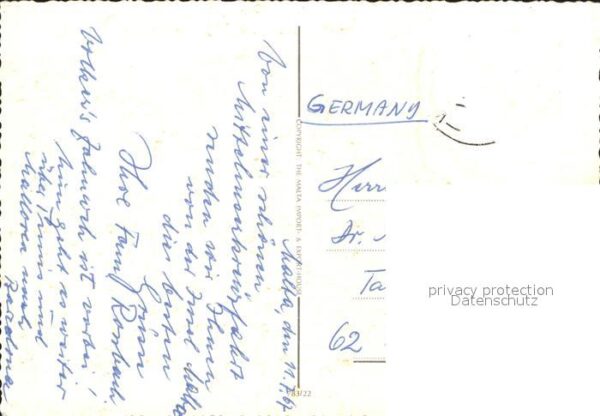 Malta, den 11.7.67
Von einer schönen
Mittelmeerkreuzfahrt
senden wir Ihnen
von der Insel Malta
die besten
Grüße
Ihre Fam.
Volker's Zahnweh ist vorbei!
Nun geht es weiter
über Tunis und
Mallorca nach
GERMANY
Herr
Dr.
Ta
62
COPYRIGHT THE MALTA IMPORT- & EXPORT-HOUSE
privacy protection
Datenschutz